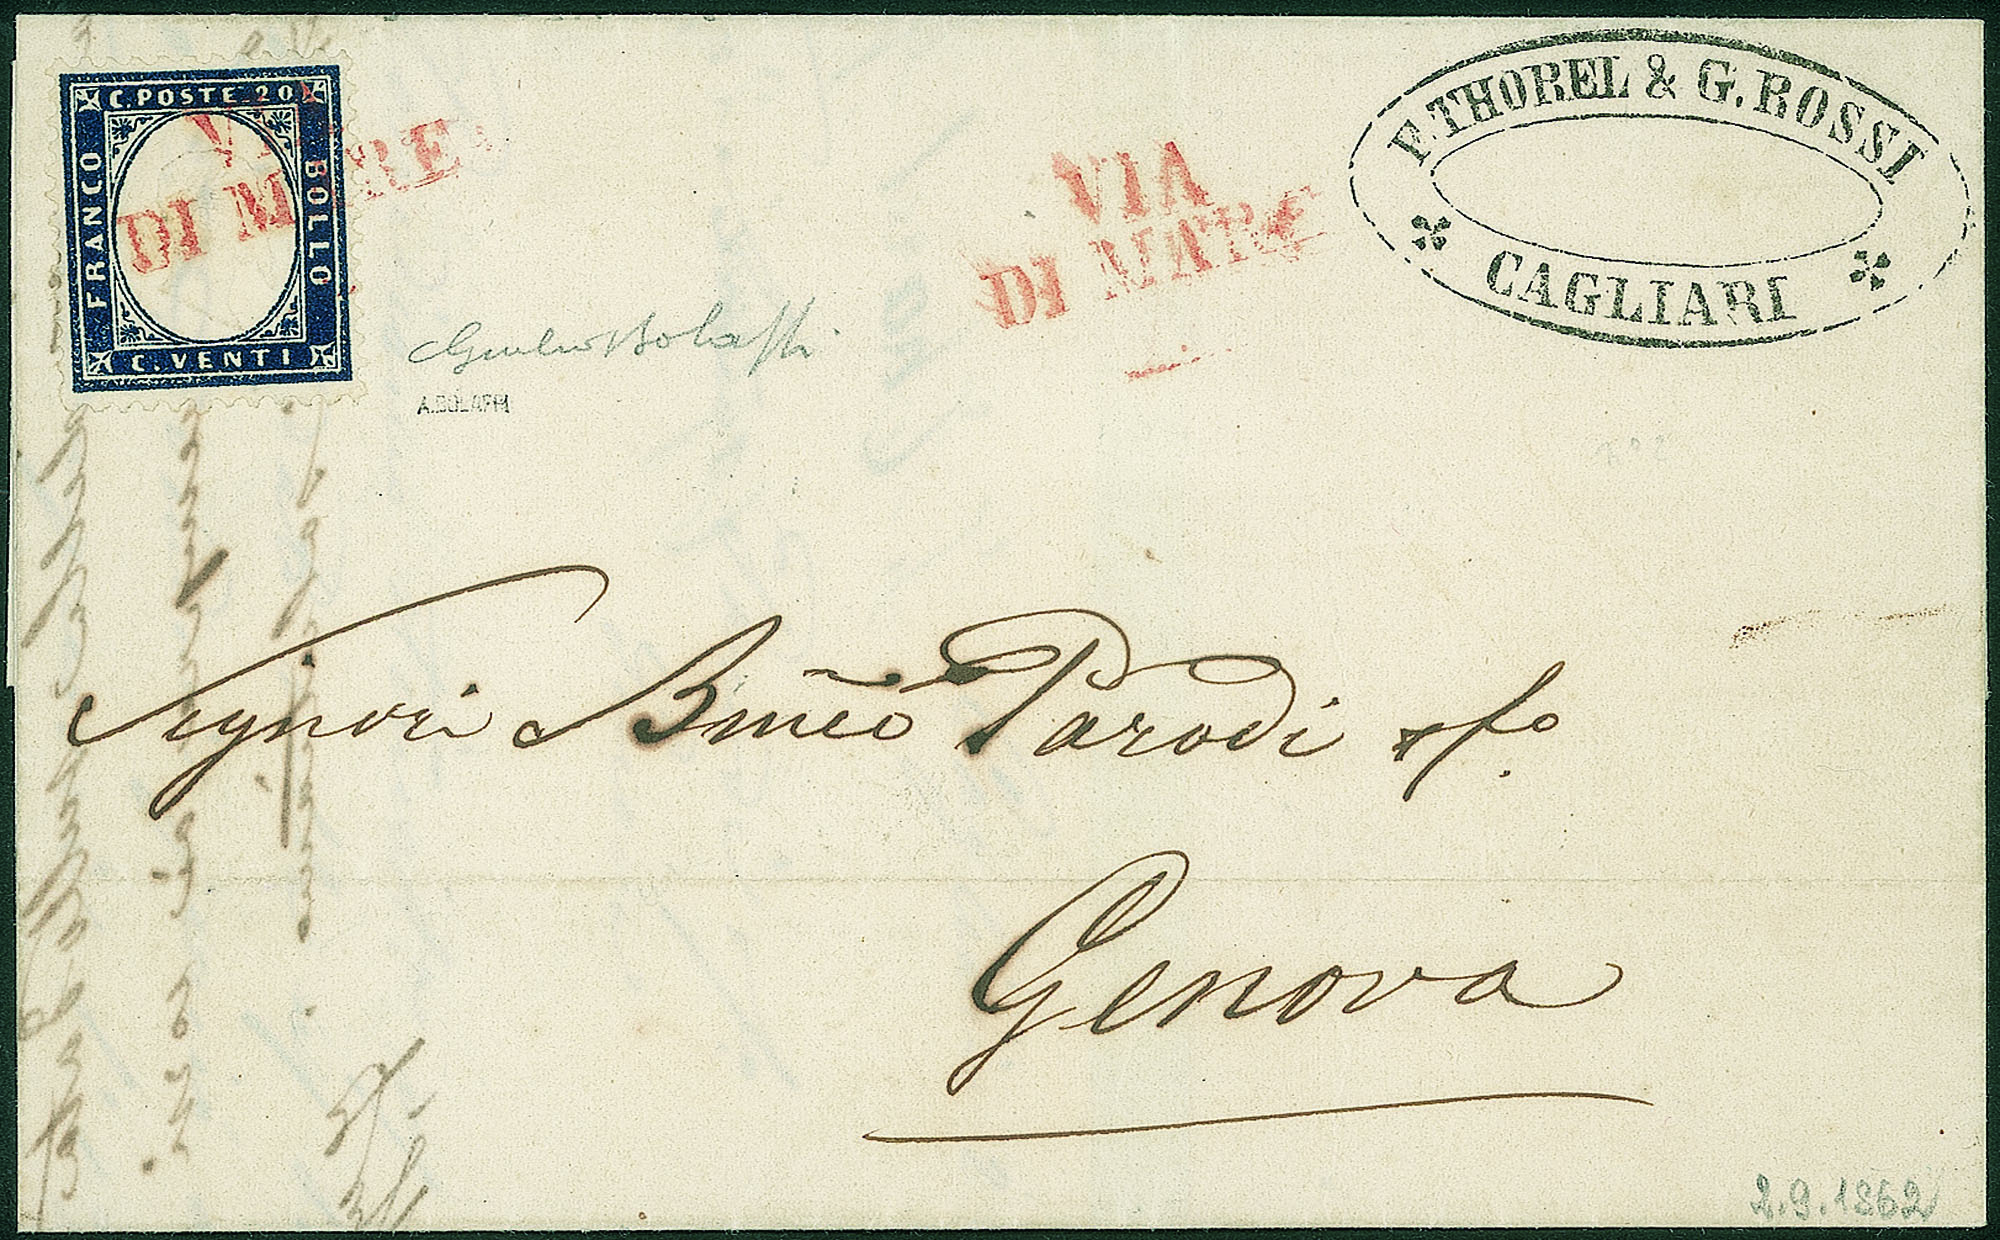 C. POSTE 20
FRANCO
BOLLO
C. VENTI
VIA
DI MARE
VIA
DI MARE
F. THOREL & G. ROSSI
CAGLIARI
Giulio Bolaffi
A. BOLAFFI
Signori Bmeo Parodi e fo
Genova
2.9.1862